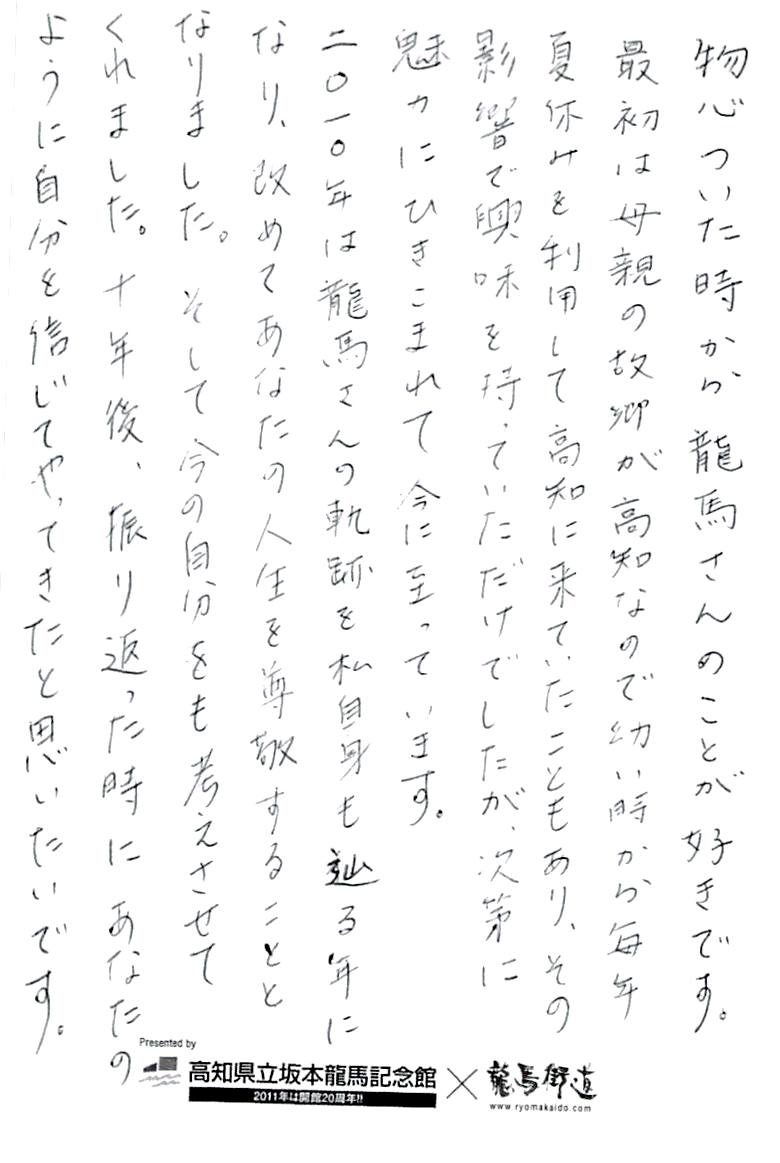 物心ついた時から龍馬さんのことが好きです。
最初は母親の故郷が高知なので幼い時から毎年
夏休みを利用して高知に来ていたこともあり、その
影響で興味を持っていただけでしたが、次第に
魅力にひきこまれて今に至っています。
二〇一〇年は龍馬さんの軌跡を私自身も辿る年に
なり、改めてあなたの人生を尊敬することと
なりました。そして今の自分をも考えさせて
くれました。十年後、振り返った時にあなたの
ように自分を信じてやってきたと思いたいです。
Presented by
高知県立坂本龍馬記念館 × 龍馬街道
2011年は開館20周年!!
www.ryomakaido.com